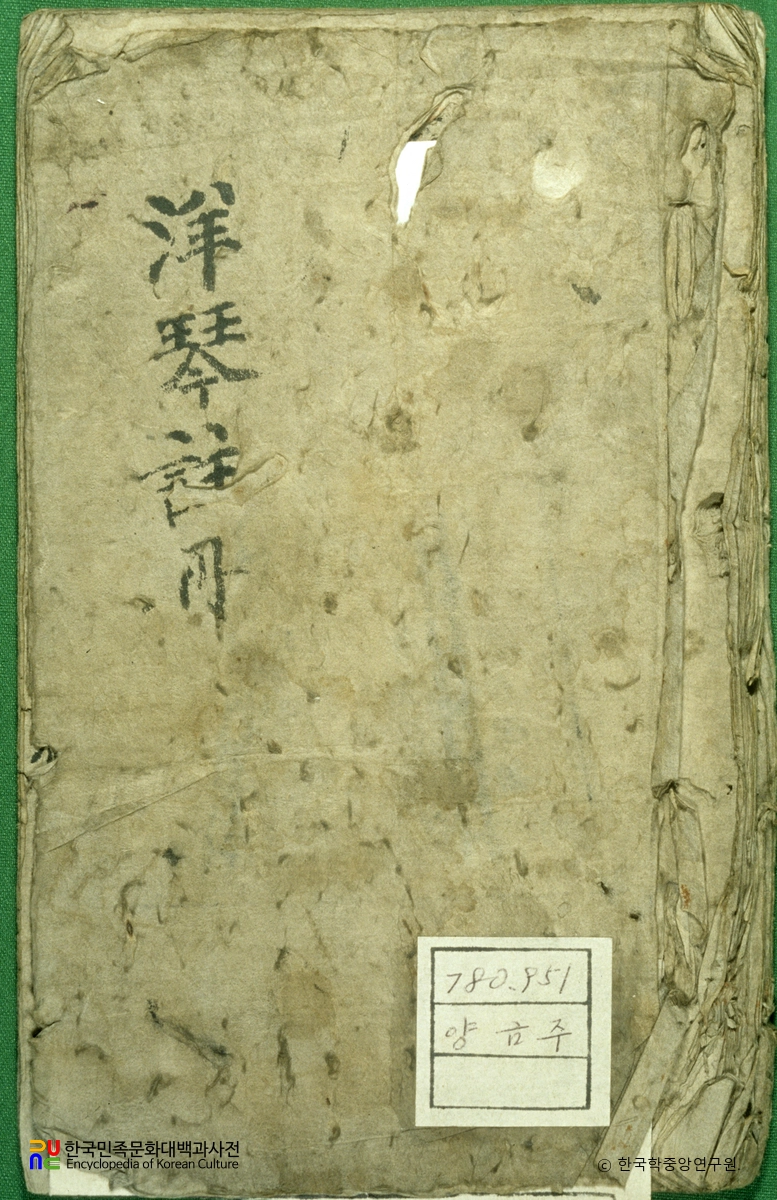 洋琴註冊
780.951
양금주
한국민족문화대백과사전
Encyclopedia of Korean Culture
© 한국학중앙연구원